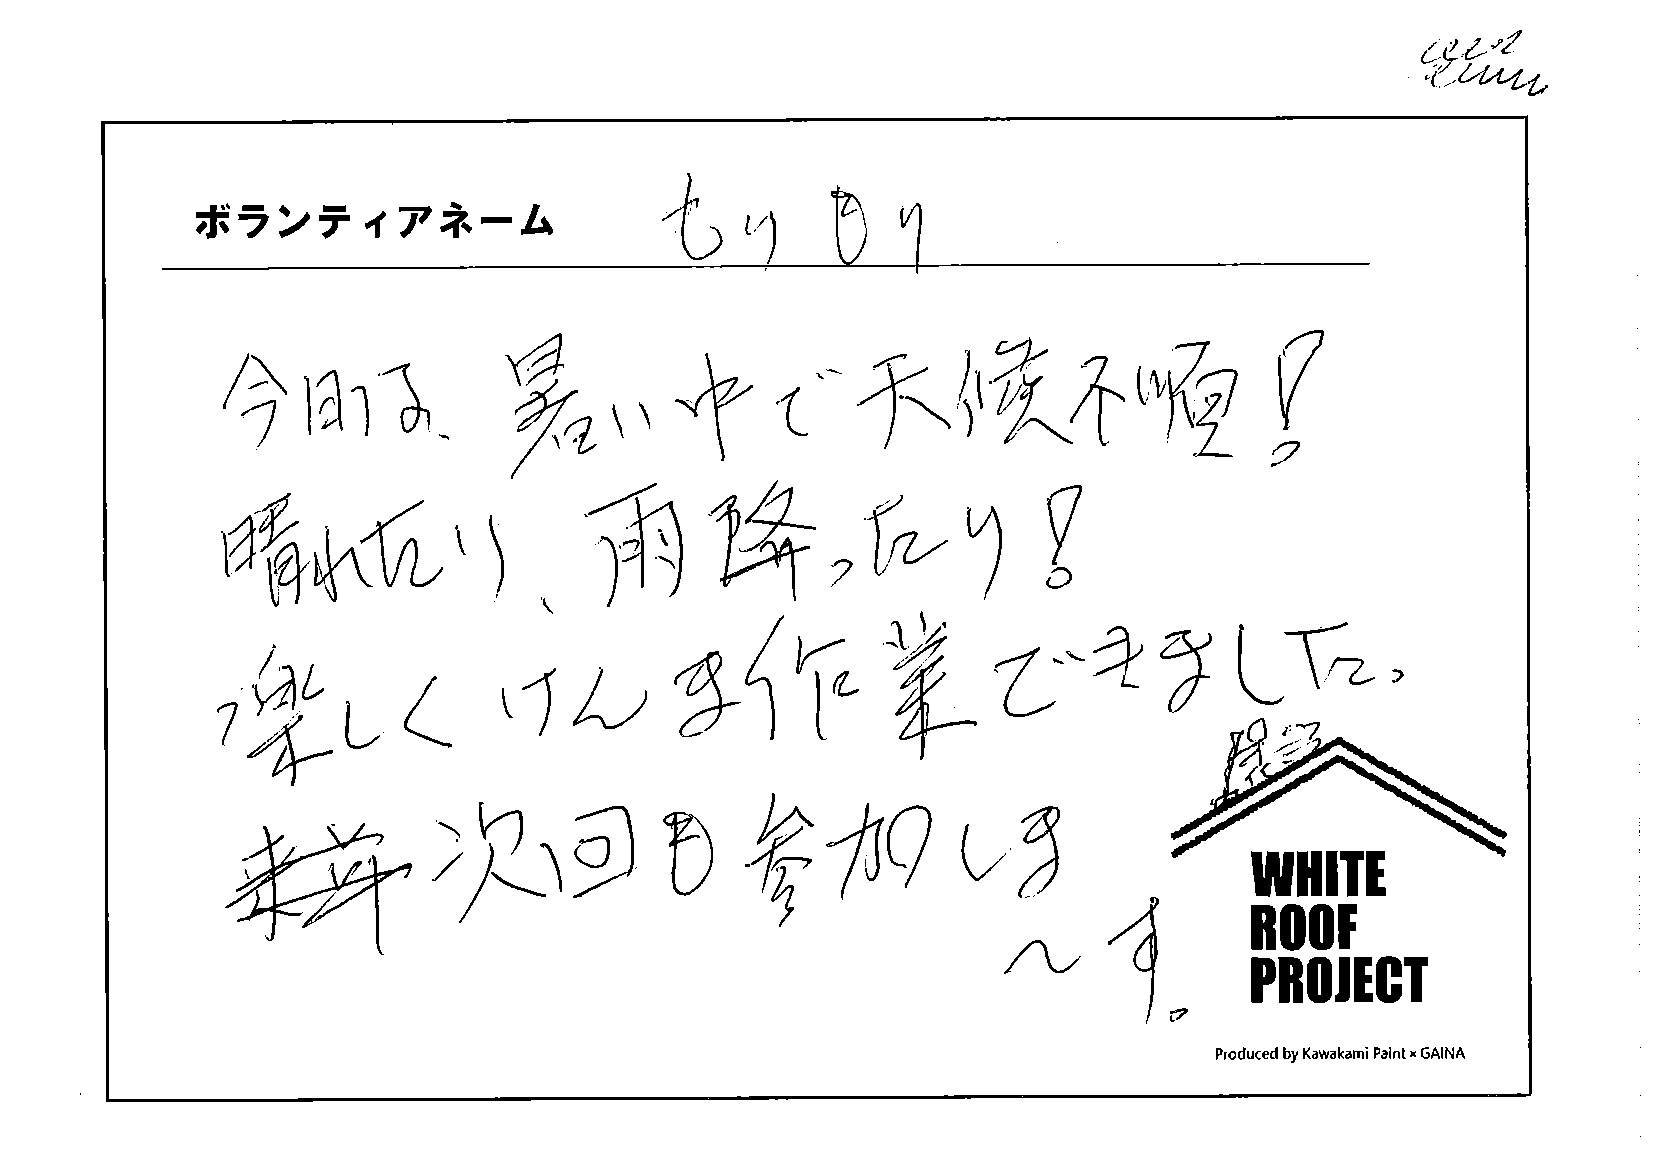 ボランティアネーム もりもり
今日は、暑い中で天候不順!
晴れたり、雨降ったり!
楽しくけんま作業できました。
次回も参加しま
～す。
WHITE
ROOF
PROJECT
Produced by Kawakami Paint × GAINA